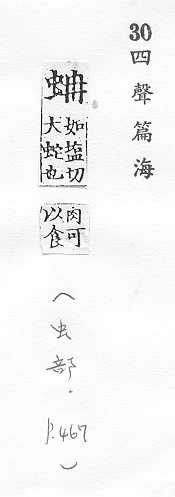 30四聲篇海
蚺
如盐切
大蛇也
肉可
以食
(虫部. P.467)